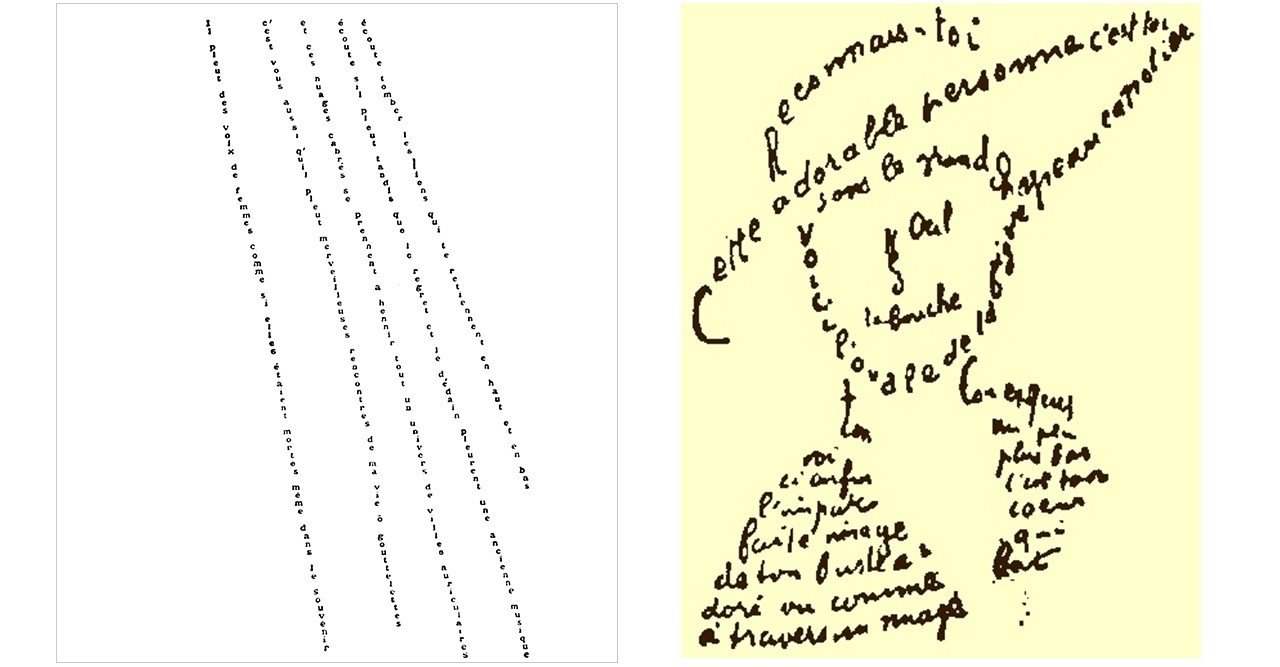 il pleut des voix de femmes comme si elles étaient mortes même dans le souvenir
c'est vous aussi qu'il pleut merveilleuses rencontres de ma vie ô gouttelettes
et ces nuages cabrés se prennent à hennir tout un univers de villes auriculaires
écoute s'il pleut tandis que le regret et le dédain pleurent une ancienne musique
écoute tomber les liens qui te retiennent en haut et en bas
Reconnais-toi
Cette adorable personne c'est toi
sous le grand chapeau canotier
Oeil
Nez
la bouche
Voici l'ovale de ta figure
ton
cou
voi
ci enfin
l'impar
faite image
de ton buste a
doré vu comme
à travers un nuage
Un peu
plus bas
c'est ton
coeur
qui
bat